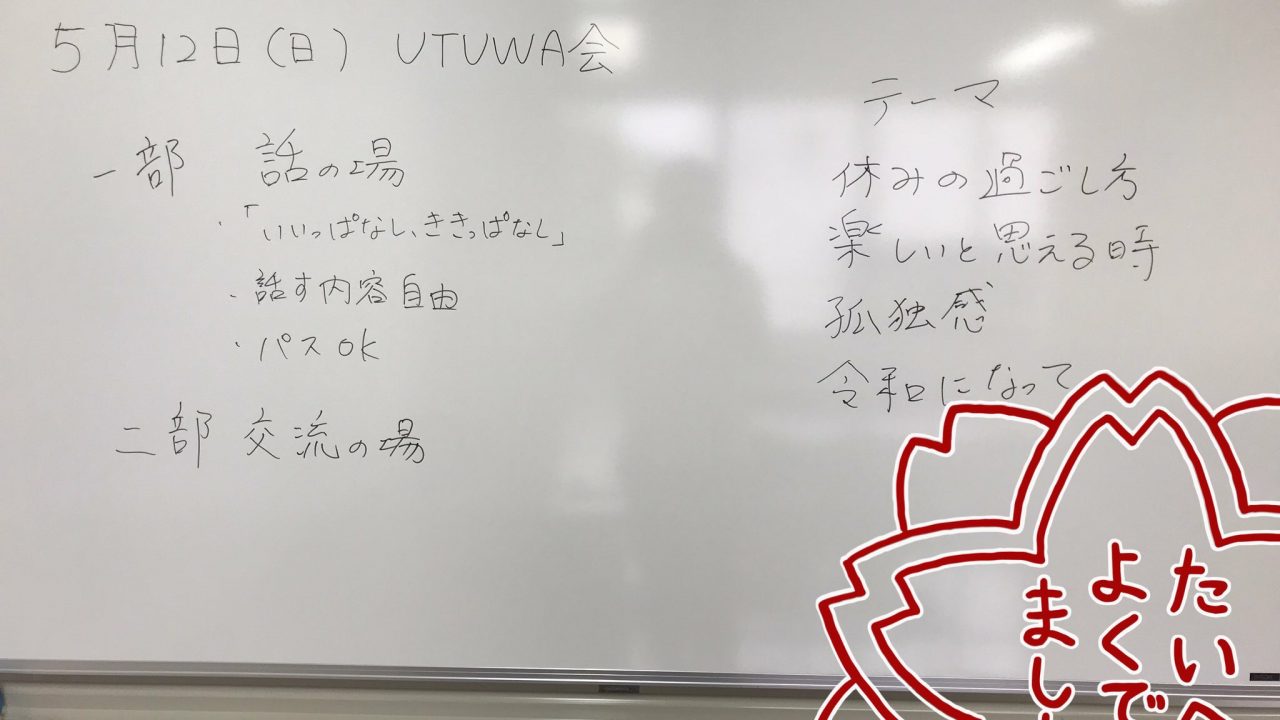 5月12日(日) UTUWA会
一部 話の場
・「いいっぱなし、ききっぱなし」
・話す内容自由
・パスOK
二部 交流の場
テーマ
休みの過ごし方
楽しいと思える時
孤独感
令和になって
たいへ
よくで
まし